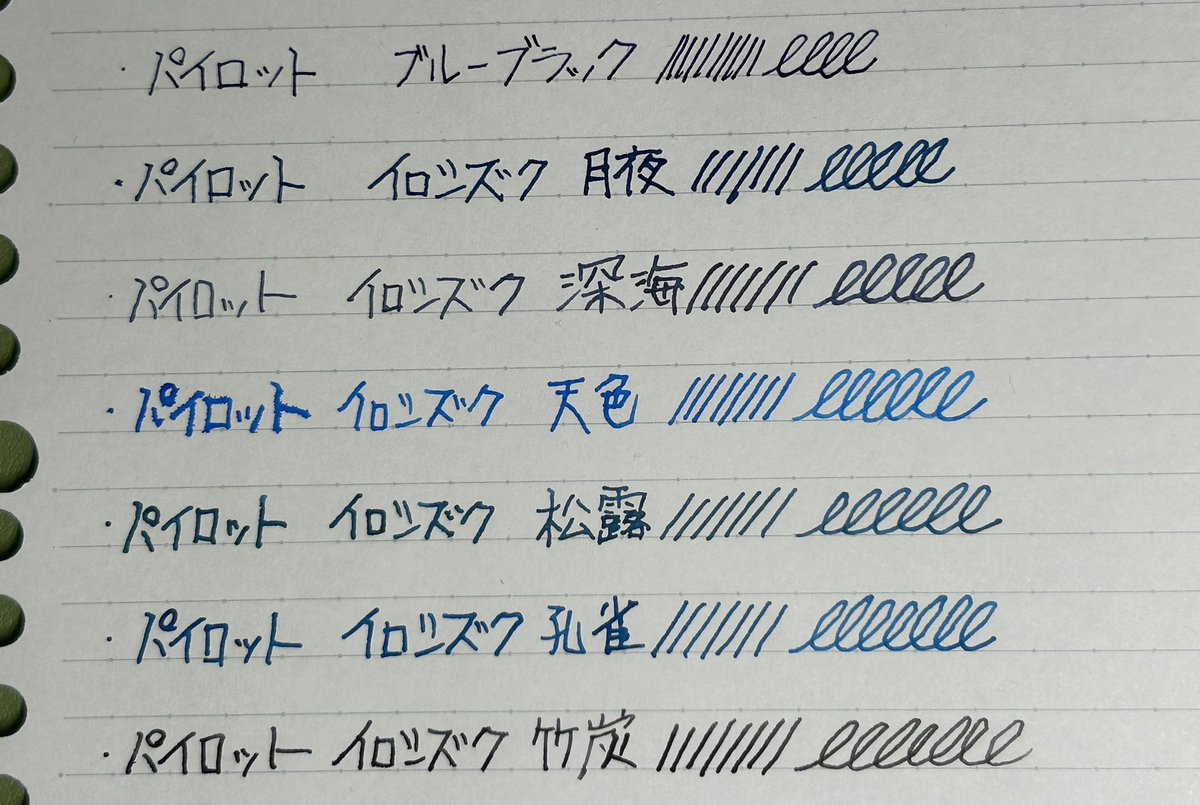 ・パイロット ブルーブラック
・パイロット イロシズク 月夜
・パイロット イロシズク 深海
・パイロット イロシズク 天色
・パイロット イロシズク 松露
・パイロット イロシズク 孔雀
・パイロット イロシズク 竹炭